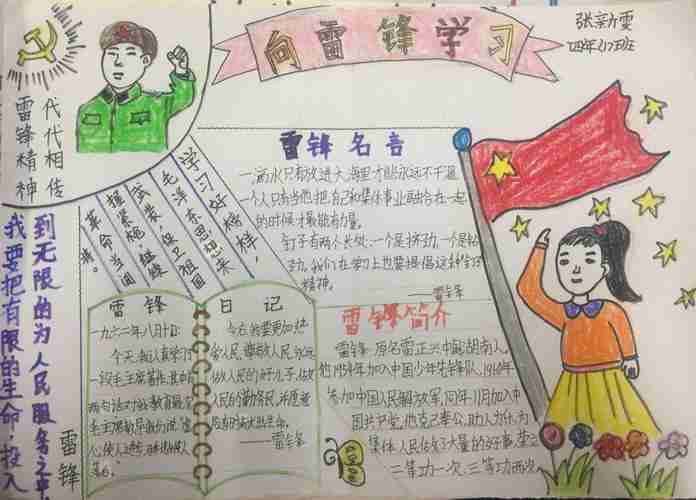 向雷锋学习
张新雯
四年(17)班
代代相传
雷锋精神
学习好榜样,
毛泽东思想来
武装,保卫祖国
握紧枪,继续
革命当闯
将。
雷锋名言
一滴水只有放进大海里才能永远不干涸
一个人只有当他把自己和集体事业融合在一起
的时候才最能有力量。
钉子有两个长处:一个是挤劲,一个是钻
劲。我们在学习上也要提倡这种钉子
精神。
——雷锋
我要把有限的生命,投入
到无限的为人民服务之中
雷锋
雷锋
日记
一九六二年八月十日:
今天,我认真学习了
一段毛主席著作,其中有
两句话对我教育最深
今后,我要更加热
爱人民,尊敬人民,永远
做人民的好儿子,做
人民的勤务员
——雷锋
雷锋简介
雷锋,原名雷正兴,中国湖南人。
他1954年加入中国少年先锋队,1960年
参加中国人民解放军,同年11月加入中
国共产党,他克己奉公,助人为乐,为
集体,人民做了大量的好事,荣立
二等功一次,三等功两次